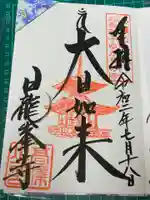 奉拝
令和二年七月十八日
大日如来
日龍峯寺